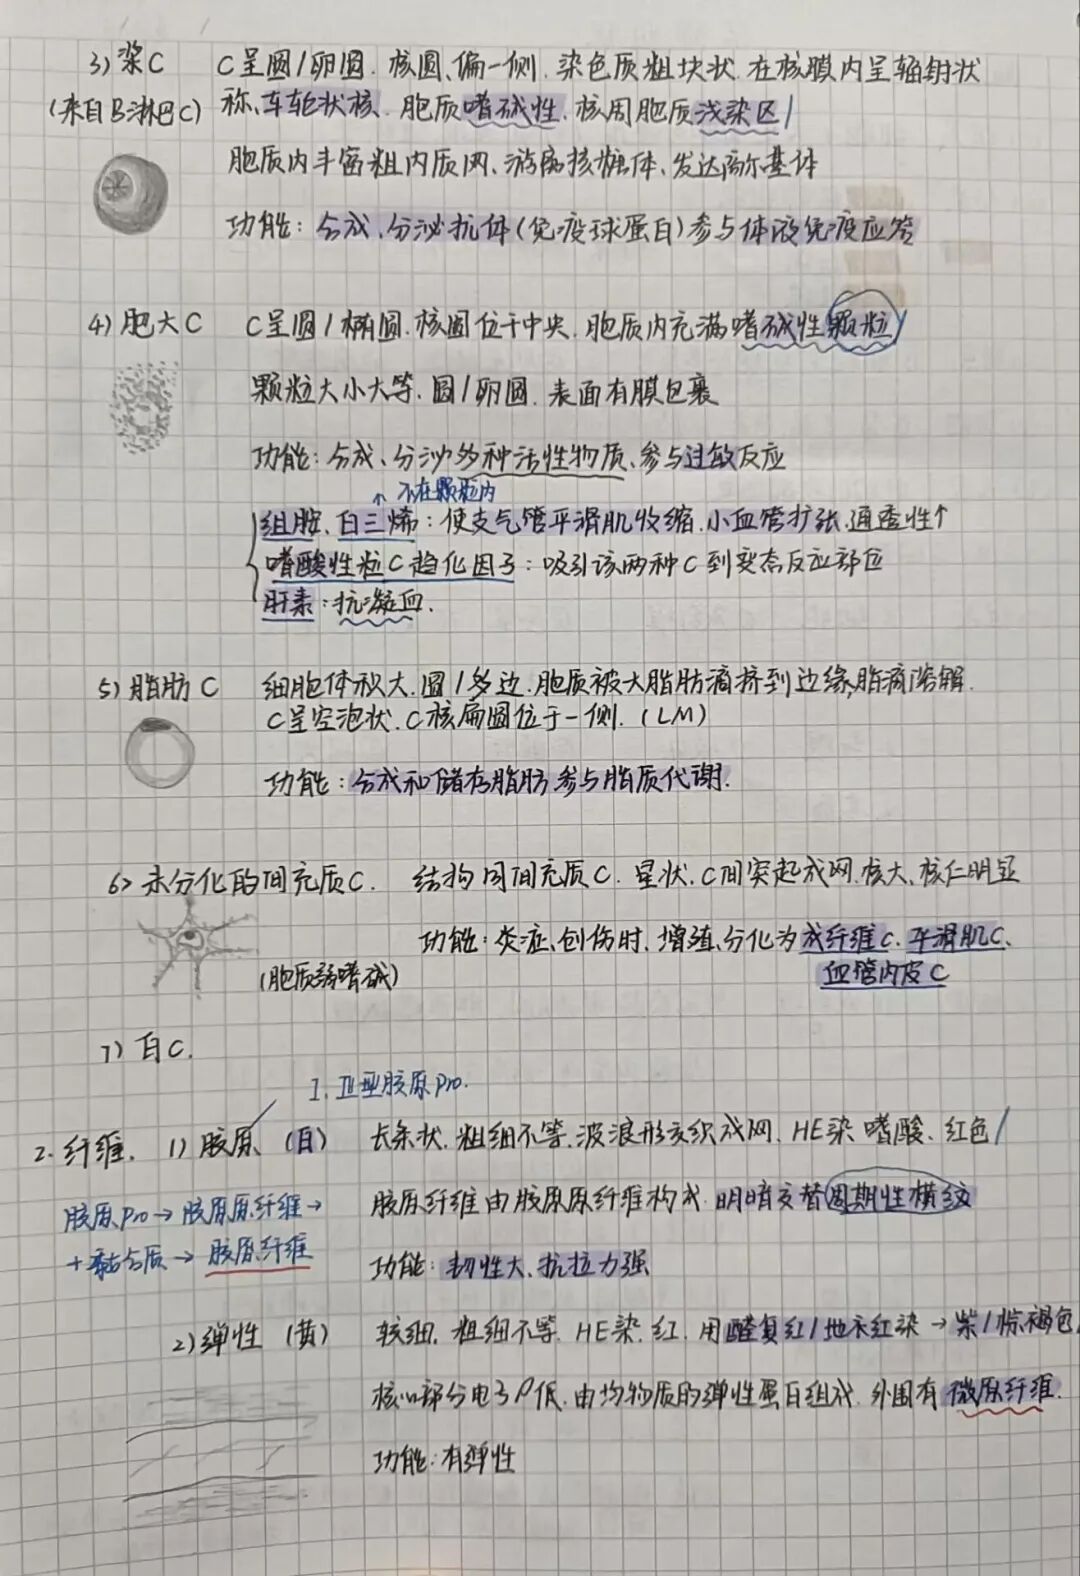 3) 浆C C呈圆/卵圆. 核圆、偏一侧. 染色质粗块状. 在核膜内呈辐射状
(来自B淋巴C) 称、车轮状核. 胞质嗜碱性. 核周胞质浅染区/
胞质内丰富粗内质网、游离核糖体、发达高尔基体
功能: 合成、分泌抗体(免疫球蛋白)参与体液免疫应答
4) 肥大C C呈圆/椭圆. 核圆位于中央. 胞质内充满嗜碱性颗粒/
颗粒大小大等. 圆/卵圆. 表面有膜包裹
功能: 合成、分泌多种活性物质、参与过敏反应
↑ 不在颗粒内
组胺、白三烯: 使支气管平滑肌收缩. 小血管扩张. 通透性↑
嗜酸性粒C趋化因子: 吸引该两种C到变态反应部位
肝素: 抗凝血.
5) 脂肪C 细胞体积大. 圆/多边. 胞质被大脂肪滴挤到边缘,脂滴溶解.
C呈空泡状. C核扁圆位于一侧. (LM)
功能: 合成和储存脂肪. 参与脂质代谢.
6) 未分化的间充质C. 结构同间充质C. 星状. C间突起成网. 核大、核仁明显
功能: 炎症、创伤时. 增殖、分化为成纤维C. 平滑肌C、
(胞质弱嗜碱) 血管内皮C
7) 白C.
I. Ⅲ型胶原pro.
2. 纤维. 1) 胶原 (白) 长条状. 粗细不等. 波浪形交织成网. HE染 嗜酸. 红色/
胶原pro→胶原原纤维→ 胶原纤维由胶原原纤维构成. 明暗交替周期性横纹
+黏合质→胶原纤维 功能: 韧性大、抗拉力强
2) 弹性 (黄) 较细. 粗细不等. HE染. 红. 用醛复红/地衣红染→紫/棕褐色
核心部分电子ρ低. 由均物质的弹性蛋白组成. 外围有微原纤维.
功能: 有弹性